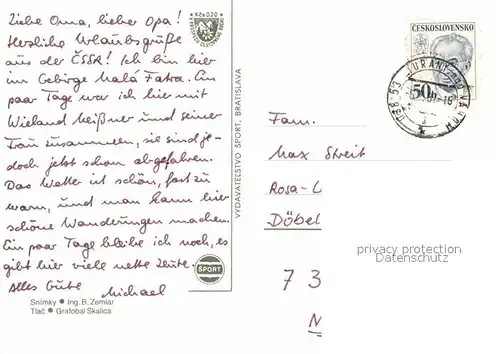 Liebe Oma, lieber Opa!
Herzliche Urlaubsgrüße
aus der ČSSR! Ich bin hier
im Gebirge Malá Fatra. Ein
paar Tage war ich hier mit
Wieland Meißner und seiner
Frau zusammen, sie sind je-
doch jetzt schon abgefahren.
Das Wetter ist schön, fast zu
warm, und man kann hier
schöne Wanderungen machen.
Ein paar Tage bleibe ich noch, es
gibt hier viele nette Leute.
Alles Gute
Michael
Snímky ● Ing. B. Zemiar
Tlač ● Grafobal Skalica
Kčs 0,20
VYDAVATEĽSTVO ŠPORT, BRATISLAVA
ŠPORT
ČESKOSLOVENSKO
50h
TURANY NAD VÁHOM
038 53
Fam.
Max Streit
Rosa-L
Döbel
privacy protection
Datenschutz
7 3
N